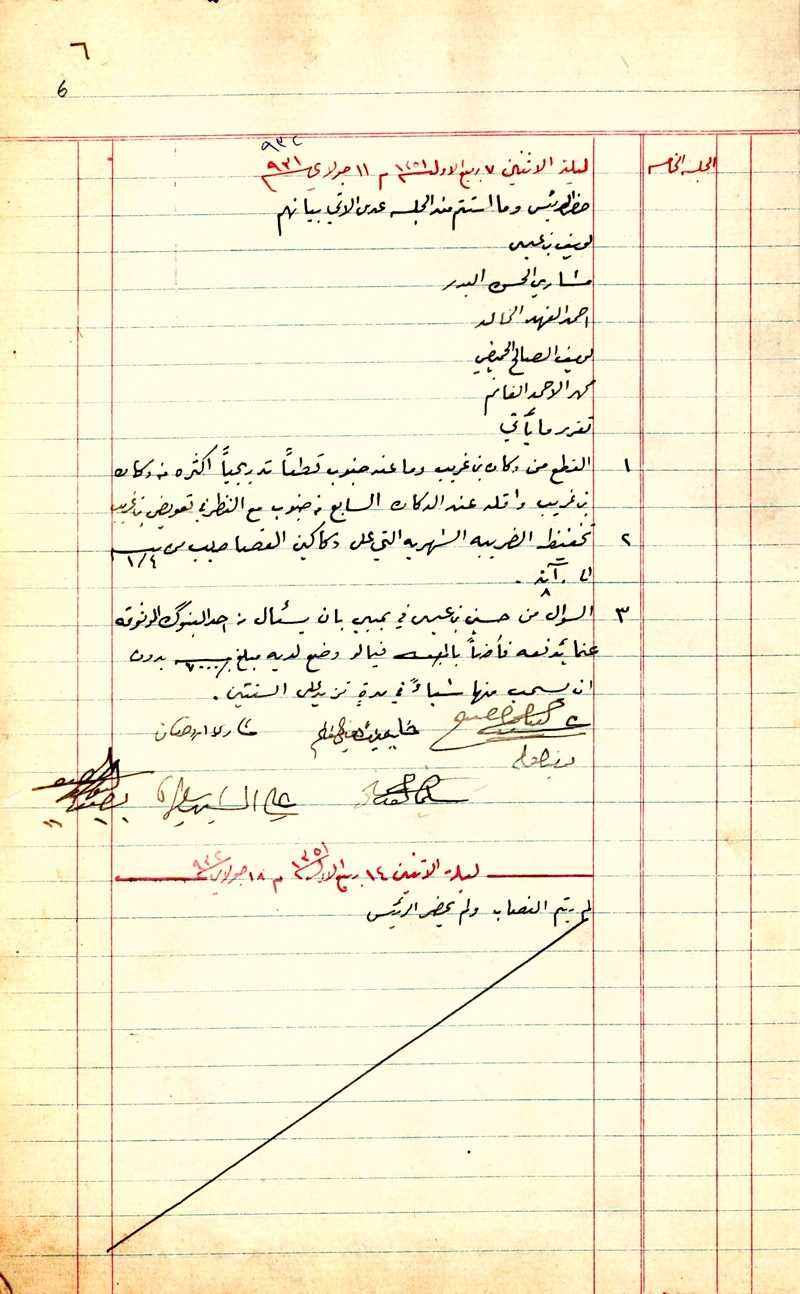 ٦
6
الجلسة الخامسه
٩٣٢
ليلة الاثنين ٧ ربيع الاول ١٣٥١ م ١١ جولاي ٩٣١
حضر الرئيس وما استتم منه الجلسه عدى الاتي بيانهم
يوسف بن عيسى
مشاري الحسن البدر
احمد الفهد الخالد
يوسف الصالح الحميضي
محمد الاحمد الغانم
تقرر ما يأتي
١ القطع من دكان بن غريب وما عنه جنوب قطعاً تدريجياً اكثره من دكان
بن غريب واقله عند الدكان السابع من جنوب مع النظر في تعويض بن غريب
٢ تخفيظ الضريبه الشهريه التي على دكاكين القصاصيب من ١/٤
الى ٨ آنه .
٣ السوال من حسين بن عيسى في بمبي بان يسئال من احد البنوك الموثوقه
عما يدفعه فأضاً فيما لو وضع لديه مبلغ ٧٠٠٠٠ بدون
ان يسحب منها شياءً في مدةٍ تزيد على السنتين .
ليلة الاثنين ١٤ ربيع الاول ١٣٥١ م ١٨ جولاي ٩٣٢
لم يتم النصاب ولم يحضر الرئيس